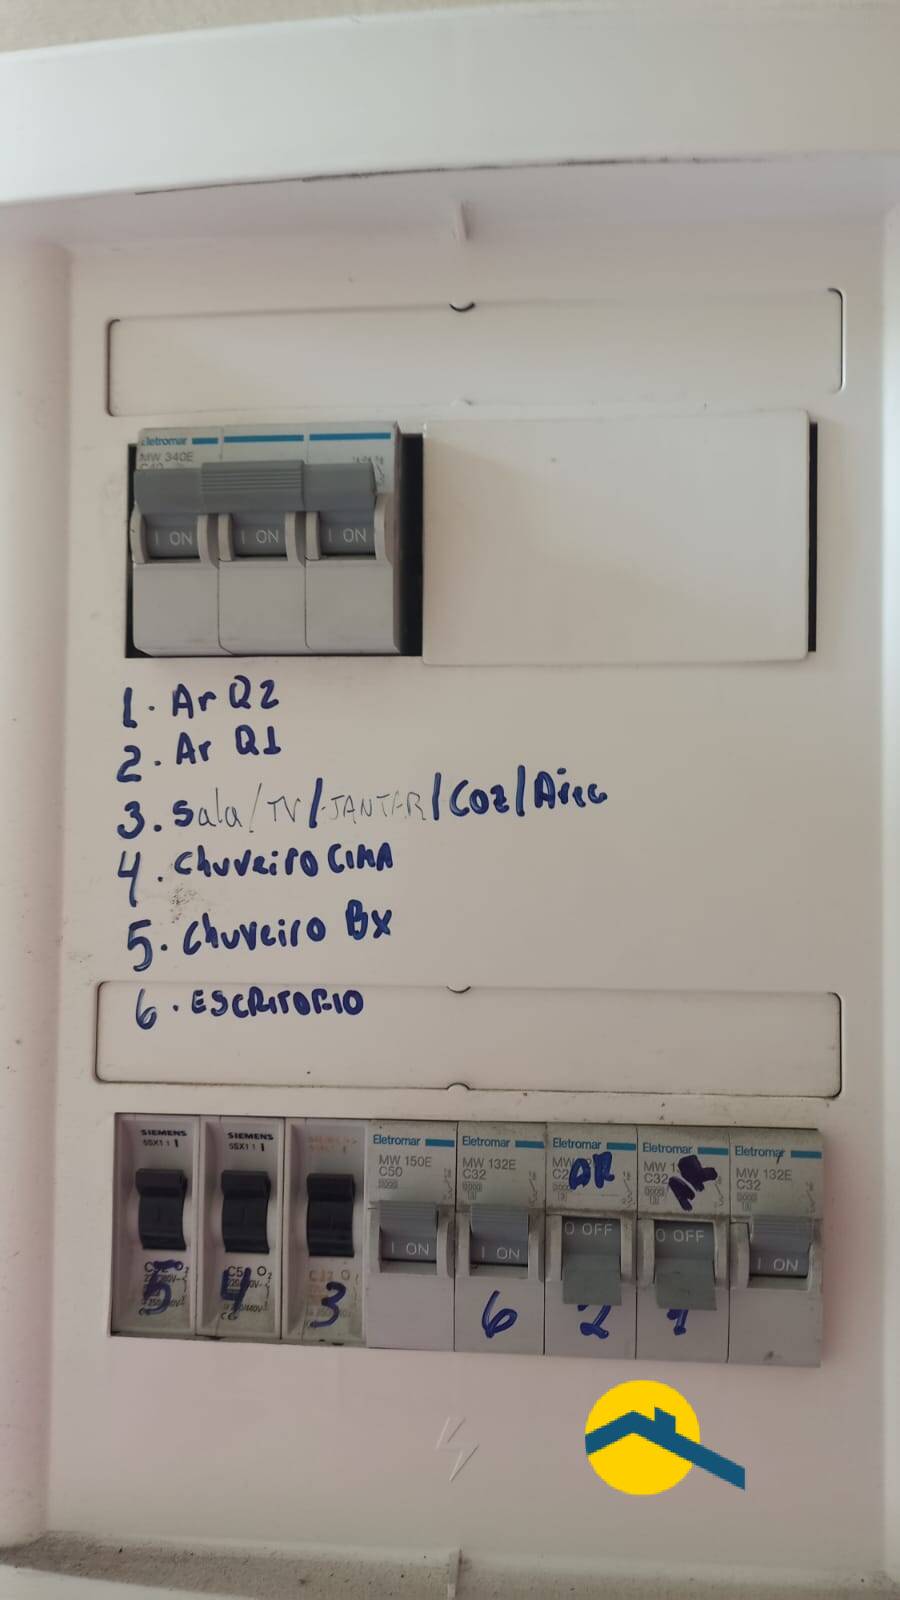 Eletromar
MW 340E
I ON I ON I ON
1. Ar Q2
2. Ar Q1
3. Sala/TV/JANTAR/Coz/Área
4. Chuveiro CIMA
5. Chuveiro Bx
6. ESCRITORIO
SIEMENS SIEMENS Eletromar Eletromar Eletromar Eletromar Eletromar
5SX1 1 5SX1 1 MW 150E MW 132E MW 132E
C50 C32 AR C32 AR C32
I ON I ON O OFF O OFF I ON
5 4 3 6 2 1